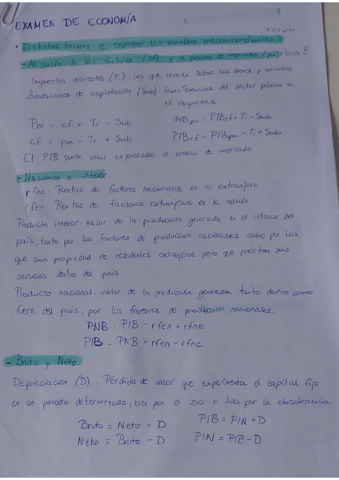 EXAMEN DE ECONOMÍA
• Distintas formas de expresar las variables macroeconómicas:
- Al coste de los factores (cf) y a precios de mercado (pm)
Impuestos indirectos (Ti): los que recaen sobre los bienes y servicios
Subvenciones de explotación (Sub): transferencias del sector público a
las empresas
Pm = cf + Ti - Sub PIBpm = PIBcf + Ti - Sub
cf = pm - Ti + Sub PIBcf = PIBpm - Ti + Sub
El PIB suele venir expresado a precios de mercado
- Nacional e interior
rfne: Rentas de factores nacionales en el extranjero
rfen: Rentas de factores extranjeros en la nación
Producto interior: valor de la producción generada en el interior del
país, tanto por los factores de producción nacionales como por los
que son propiedad de residentes extranjeros pero que prestan sus
servicios dentro del país.
Producto nacional: valor de la producción generada tanto dentro como
fuera del país, por los factores de producción nacionales.
PNB = PIB - rfen + rfne
PIB = PNB + rfen - rfne
- Bruto y Neto:
Depreciación (D): Pérdida de valor que experimenta el capital fijo
en un periodo determinado, bien por el uso o bien por la obsolescencia
Bruto = Neto + D PIB = PIN + D
Neto = Bruto - D PIN = PIB - D